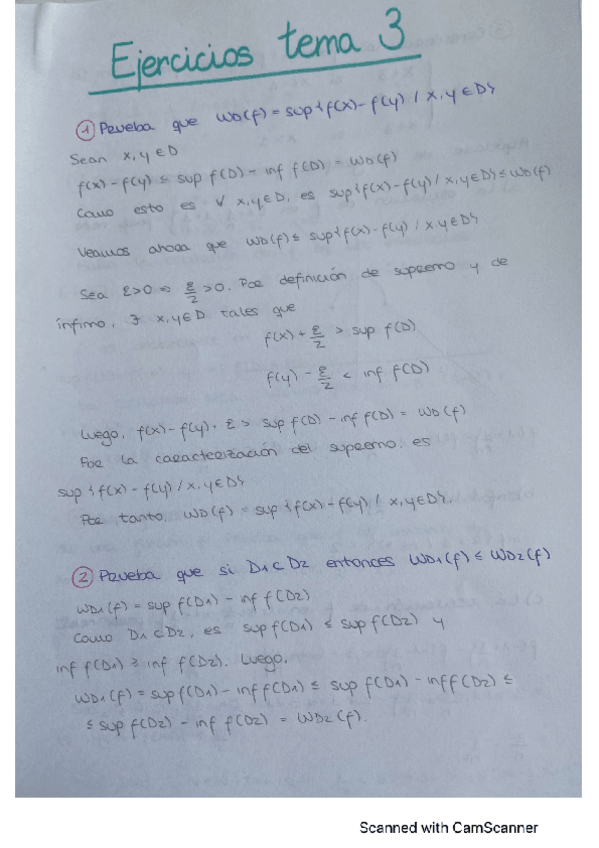 Ejercicios tema 3
① Prueba que WD(f) = sup {f(x) - f(y) / x, y ∈ D}
Sean x, y ∈ D
f(x) - f(y) ≤ sup f(D) - inf f(D) = WD(f)
Como esto es ∀ x, y ∈ D, es sup {f(x) - f(y) / x, y ∈ D} ≤ WD(f)
Veamos ahora que WD(f) ≤ sup {f(x) - f(y) / x, y ∈ D}
Sea ε > 0 ⇒ ε/2 > 0. Por definición de supremo y de
ínfimo, ∃ x, y ∈ D tales que
f(x) + ε/2 > sup f(D)
f(y) - ε/2 < inf f(D)
Luego, f(x) - f(y) + ε > sup f(D) - inf f(D) = WD(f)
Por la caracterización del supremo, es
sup {f(x) - f(y) / x, y ∈ D}
Por tanto, WD(f) = sup {f(x) - f(y) / x, y ∈ D}.
② Prueba que si D1 ⊂ D2 entonces WD1(f) ≤ WD2(f)
WD1(f) = sup f(D1) - inf f(D2)
Como D1 ⊂ D2, es sup f(D1) ≤ sup f(D2) y
inf f(D1) ≥ inf f(D2). Luego,
WD1(f) = sup f(D1) - inf f(D1) ≤ sup f(D1) - inf f(D2) ≤
≤ sup f(D2) - inf f(D2) = WD2(f).
Scanned with CamScanner